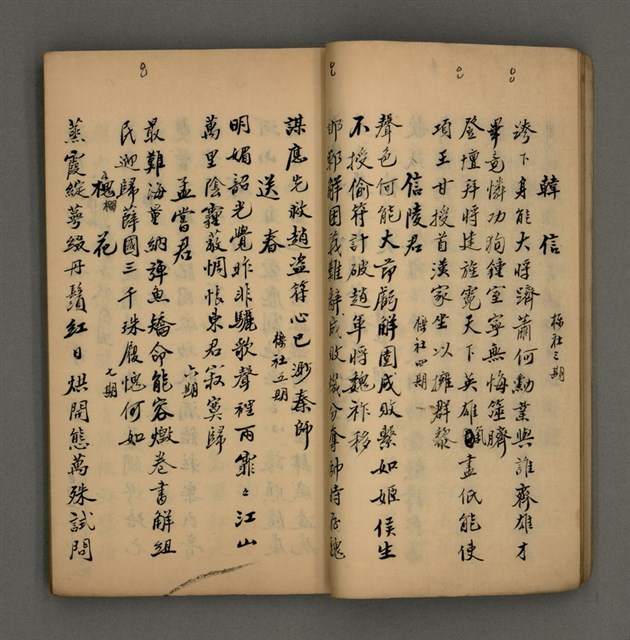 韓信 梅社三期
跨下身能大將躋蕭何勳業與誰齊雄才
畢竟憐功狗鍾室寧無悔
登壇拜將建旌霓天下英雄盡低能使
項王甘授首漢家坐以擁群黎
信陵君 梅社四期
聲色何能大節虧解圍成敗繫如姬侯生
不授偷符計破趙軍將魏祚移
邯鄲解困義難辭成敗
謀應先救趙盜符心已渺秦師
送春 梅社五期
明媚韶光覺昨非驪歌聲裡雨霏々江山
萬里陰霾蔽惆悵東君寂寞歸
孟嘗君 六期
最難海量納彈魚矯命能容燬卷書解組
民迎歸薛國三千珠履愧何如
榴花 七期
蒸霞綻萼綴丹鬚紅日烘開態萬殊試問